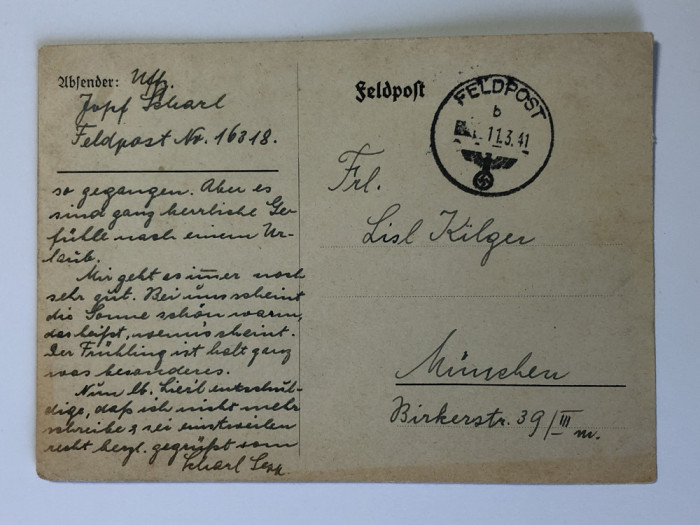 Absender: Uffz.
Feldpost
FELDPOST
b
11.3.41
Scharl
Feldpost Nr. 16318.
so gegangen. Aber es
sind ganz herrliche Ge-
fühle nach einem Ur-
laub.
Mir geht es immer noch
sehr gut. Bei uns scheint
die Sonne schön warm,
das heißt, wenn's scheint.
Der Frühling ist halt ganz
was besonderes.
Nun lb. Liesl entschul-
dige, daß ich nicht mehr
schreibe & sei einstweilen
recht herzl. gegrüßt vom
Scharl
Frl.
Lisl Kilger
München
Birkerstr. 39/III